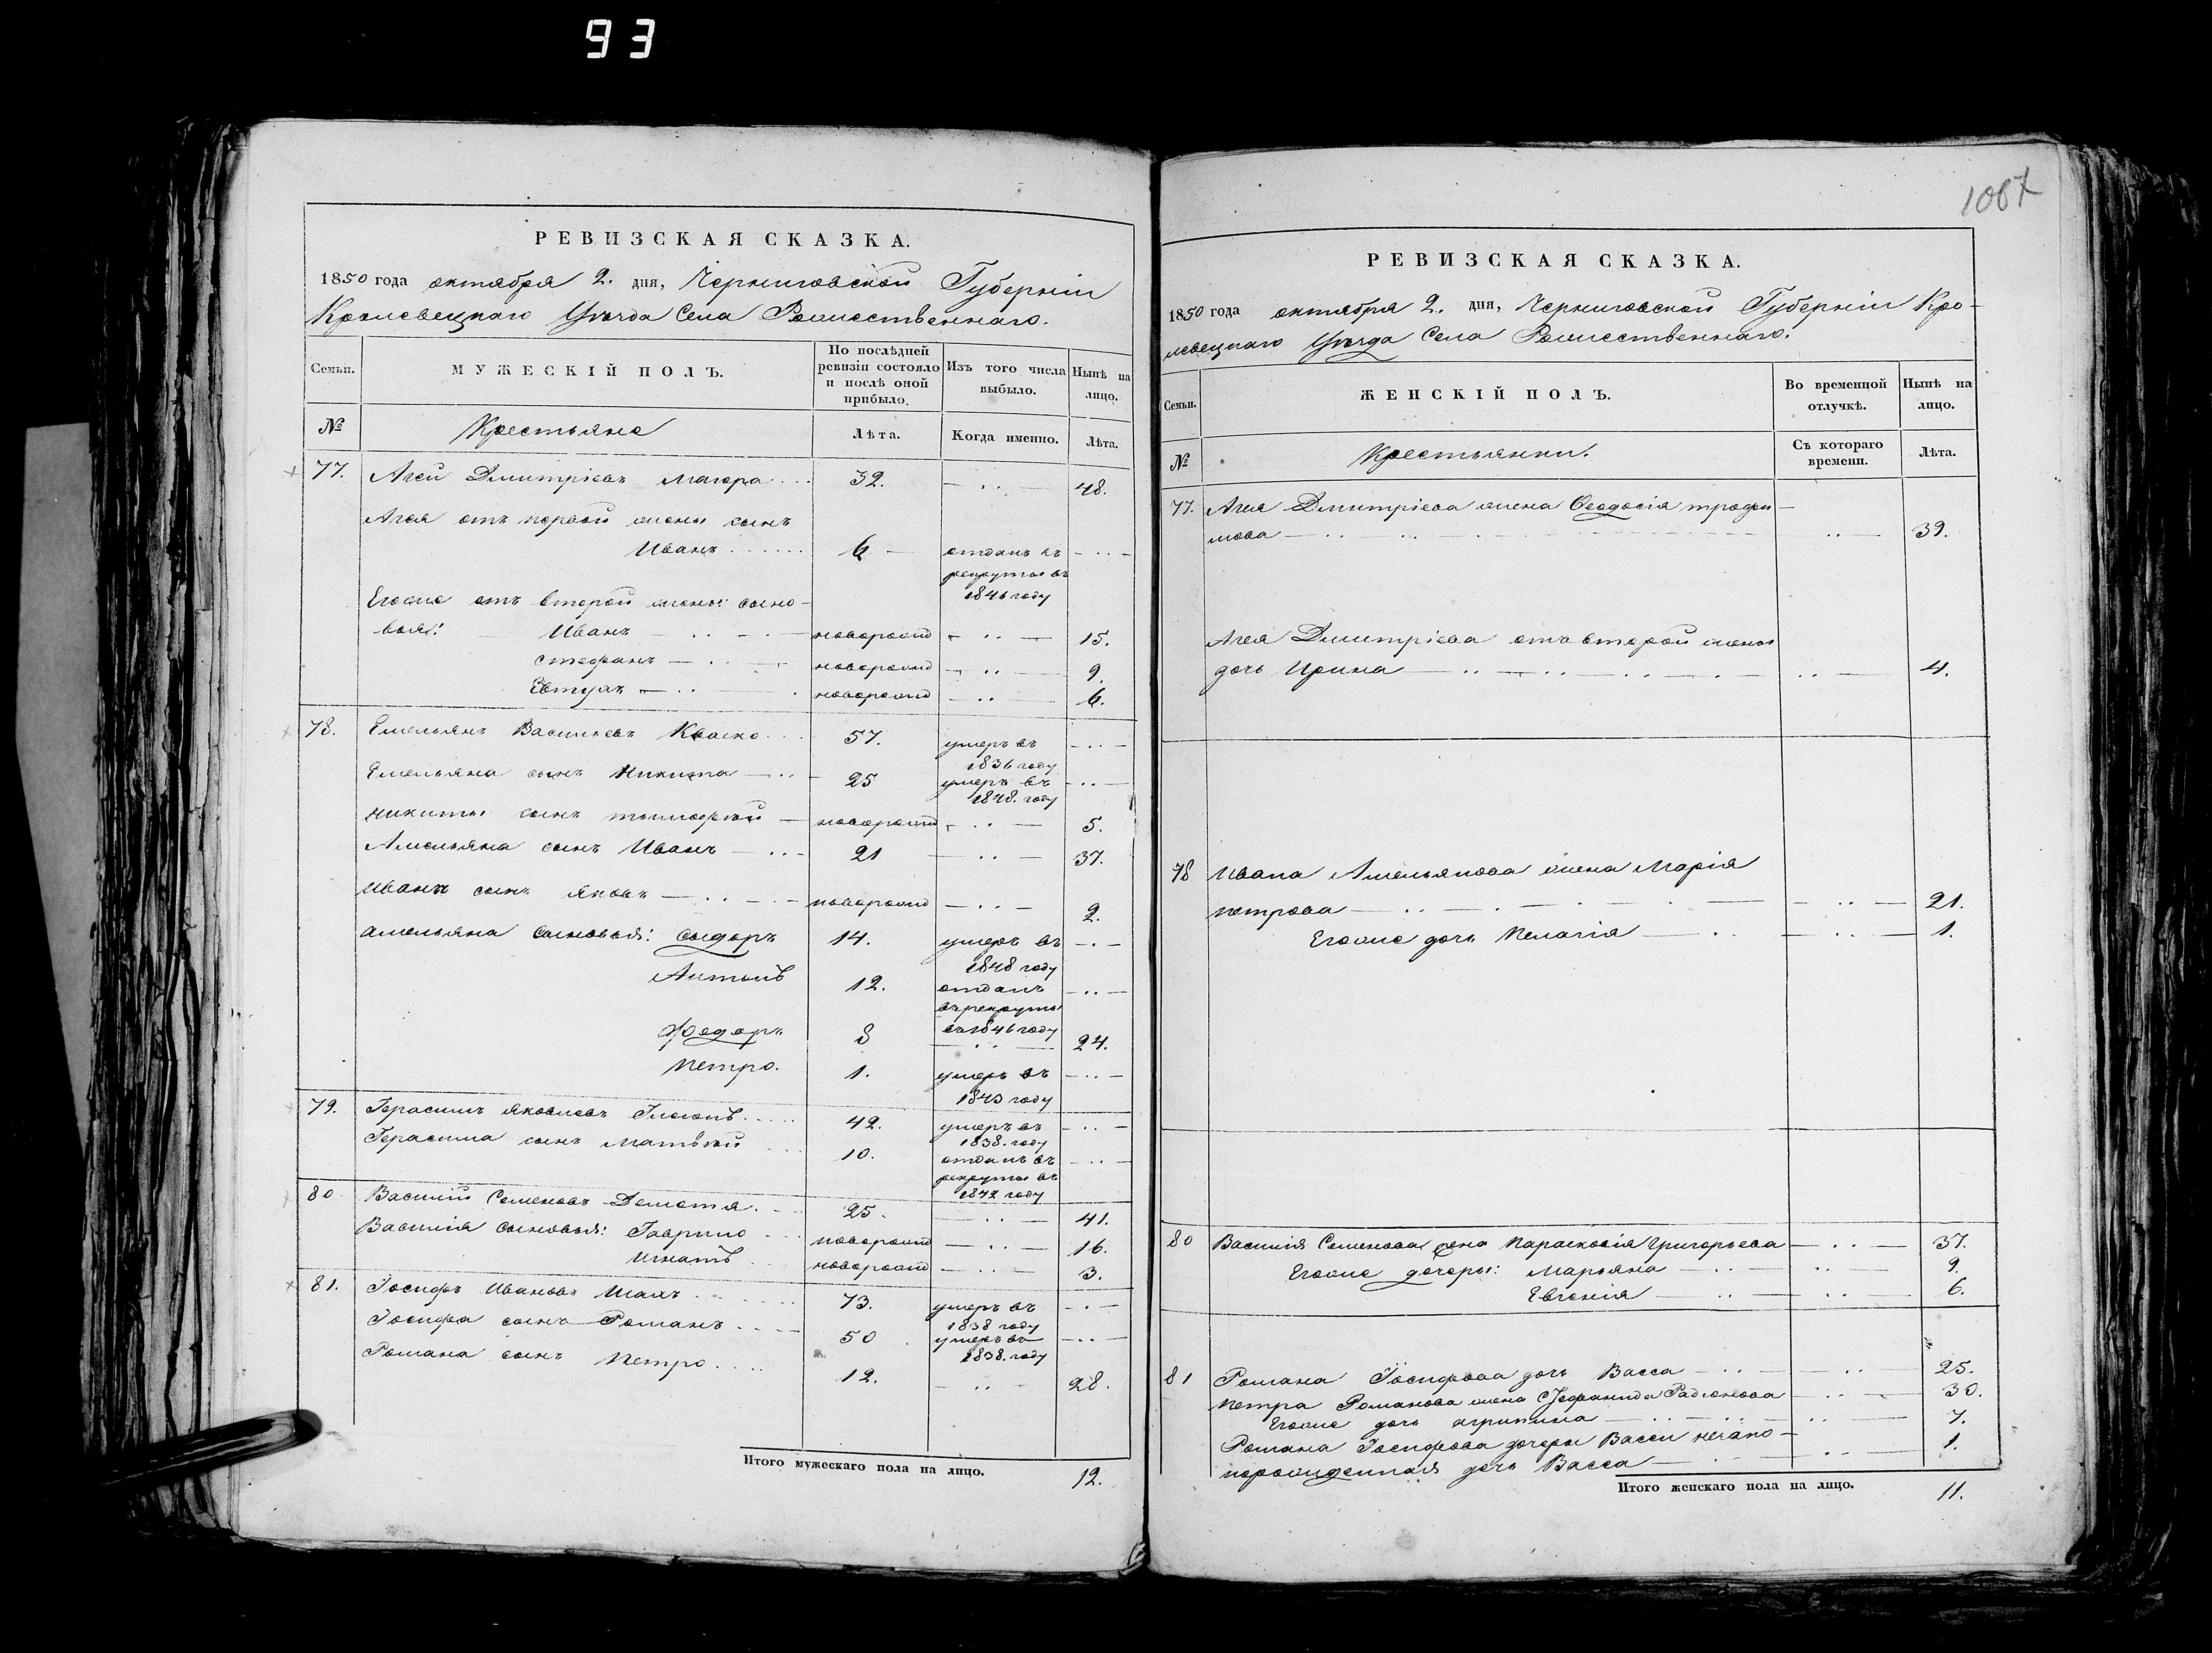 93
1067
РЕВИЗСКАЯ СКАЗКА.
1850 года октября 2. дня, Черниговской Губерніи
Кролевецкаго Уѣзда Села Рожественнаго.
Семьи.
МУЖЕСКІЙ ПОЛЪ.
По послѣдней ревизіи состояло и послѣ оной прибыло.
Изъ того числа выбыло.
Нынѣ на лицо.
№
Крестьяне
Лѣта.
Когда именно.
Лѣта.
77. Агей Дмитріевъ Магера 32. 48.
Агея отъ первой жены сынъ
Иванъ 6 отданъ въ
рекруты въ
1846 году
Егоже отъ второй жены сыно-
вья: Иванъ новорожд 15.
Стефанъ новорожд 9.
Евтухъ новорожд 6.
78. Емельянъ Васильевъ Кваско 57. умеръ въ
1836 году
Емельяна сынъ Никита 25 умеръ въ
1848. году
Никиты сынъ тымофѣй новорожд 5.
Амельяна сынъ Иванъ 21 37.
Иванъ сынъ Яковъ новорожд 2.
Амельяна сыновья: Сыдоръ 14. умеръ въ
1848 году
Антонъ 12. отданъ
въ рекруты
въ 1846 году
Федоръ 8 24.
Петро. 1. умеръ въ
1843 году
79. Герасимъ Яковлевъ 42. умеръ въ
1838. году
Герасима сынъ Матвѣй 10. отданъ въ
рекруты въ
1842 году
80. Василій Семеновъ 25. 41.
Василія сыновья: Гаврило новорожд 16.
Игнатъ новорожд 3.
81. Іосифъ Ивановъ Шахъ 73. умеръ въ
1838 году
Іосифа сынъ Романъ 50 умеръ въ
1838. году
Романа сынъ Петро 12. 28.
Итого мужескаго пола на лицо. 12.
РЕВИЗСКАЯ СКАЗКА.
1850 года октября 2. дня, Черниговской Губерніи Кро-
левецкаго Уѣзда Села Рожественнаго.
Семьи.
ЖЕНСКІЙ ПОЛЪ.
Во временной отлучкѣ.
Нынѣ на лицо.
№
Крестьянки.
Съ котораго времени.
Лѣта.
77. Агея Дмитріева жена Феодосія трофи-
мова 39.
Агея Дмитріева отъ второй жены
дочь Ирина 4.
78 Ивана Амельянова жена Марія
петрова 21.
Егоже дочь Пелагія 1.
80 Василія Семенова жена Парасковія Григорьева 37.
Егоже дочеры: Марьяна 9.
Евгенія 6.
81 Романа Іосифова дочь Васса 25.
Петра Романова жена Стефанида Радіонова 30.
Егоже дочь агрипина 7.
Романа Іосифова дочери Васси незако-
норожденная дочь Васса 1.
Итого женскаго пола на лицо. 11.